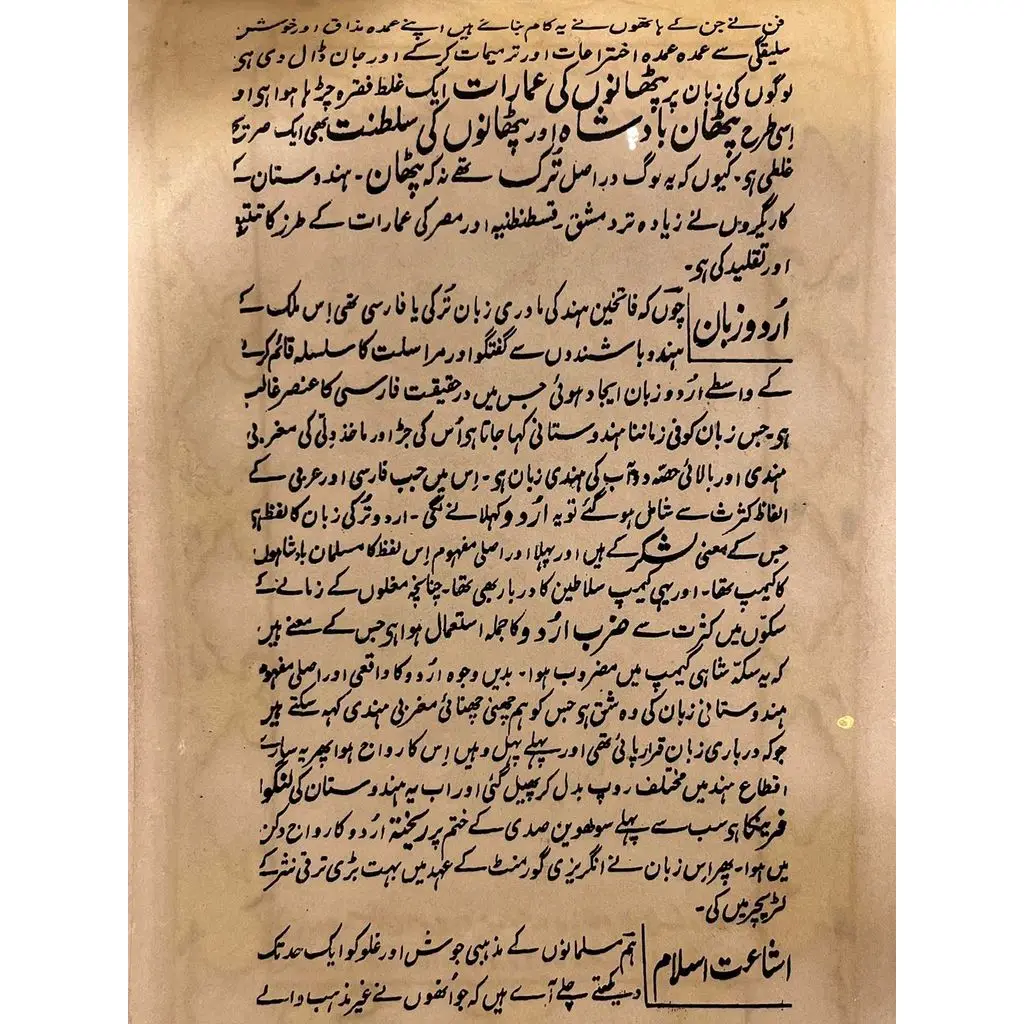 فن نے جن کے ہاتھوں نے یہ کام بنائے ہیں اپنے عمدہ مذاق اور خوش
سلیقگی سے عمدہ عمدہ اختراعات اور ترمیمات کرکے اور جان ڈال دی ہی
لوگوں کی زبان پر پٹھانوں کی عمارات ایک غلط فقرہ چڑہا ہوا ہی او
اِسی طرح پٹھان بادشاہ اور پٹھانوں کی سلطنت بھی ایک صریح
غلطی ہو۔ کیوں کہ یہ لوگ در اصل تُرک تھے نہ کہ پٹھان۔ ہندوستان کے
کاریگروں نے زیادہ تر دمشق۔ قسطنطنیہ اور مصر کی عمارات کے طرز کا تتبع
اور تقلید کی ہو۔
اُردو زبان
چوں کہ فاتحین ہند کی مادری زبان تُرکی یا فارسی تھی اِس ملک کے
ہندو باشندوں سے گفتگو اور مراسلت کا سلسلہ قائم کرنے
کے واسطے اُردو زبان ایجاد ہوئی جس میں در حقیقت فارسی کا عنصر غالب
ہو۔ جس زبان کو فی زماننا ہندوستانی کہا جاتا ہو اُس کی جڑ اور ماخذ دِلّی کی مغربی
ہندی اور بالائی حصّہ دوآب کی ہندی زبان ہو۔ اِس میں جب فارسی اور عربی کے
الفاظ کثرت سے شامل ہو گئے تو یہ اُردو کہلانے لگی۔ اردو تُرکی زبان کا لفظ ہی
جس کے معنی لشکر کے ہیں اور پہلا اور اصلی مفہوم اِس لفظ کا مسلمان بادشاہوں
کا کیمپ تھا۔ اور یہی کیمپ سلاطین کا دربار بھی تھا۔ چنانچہ مغلوں کے زمانے کے
سکّوں میں کثرت سے ضرب اُردو کا جملہ استعمال ہوا ہی جس کے معنے ہیں
کہ یہ سکّہ شاہی کیمپ میں مضروب ہوا۔ بدیں وجوہ اُردو کا واقعی اور اصلی مفہوم
ہندوستانی زبان کی وہ شق ہو جس کو ہم چھنی چھنائی مغربی ہندی کہہ سکتے ہیں
جو کہ درباری زبان قرار پائی تھی اور پہلے پہل وہیں اِس کا رواج ہوا پھر یہ سارے
اقطاع ہند میں مختلف روپ بدل کر پھیل گئی اور اب یہ ہندوستان کی لنگوا
فرینکا ہو سب سے پہلے سولھویں صدی کے ختم پر ریختۂ اُردو کا رواج دکن
میں ہوا۔ پھر اِس زبان نے انگریزی گورمنٹ کے عہد میں بہت بڑی ترقی نثر کے
لٹریچر میں کی۔
اشاعت اسلام
ہم مسلمانوں کے مذہبی جوش اور غلو کو ایک حد تک
دیکھتے چلے آے ہیں کہ جو اُنھوں نے غیر مذہب والے